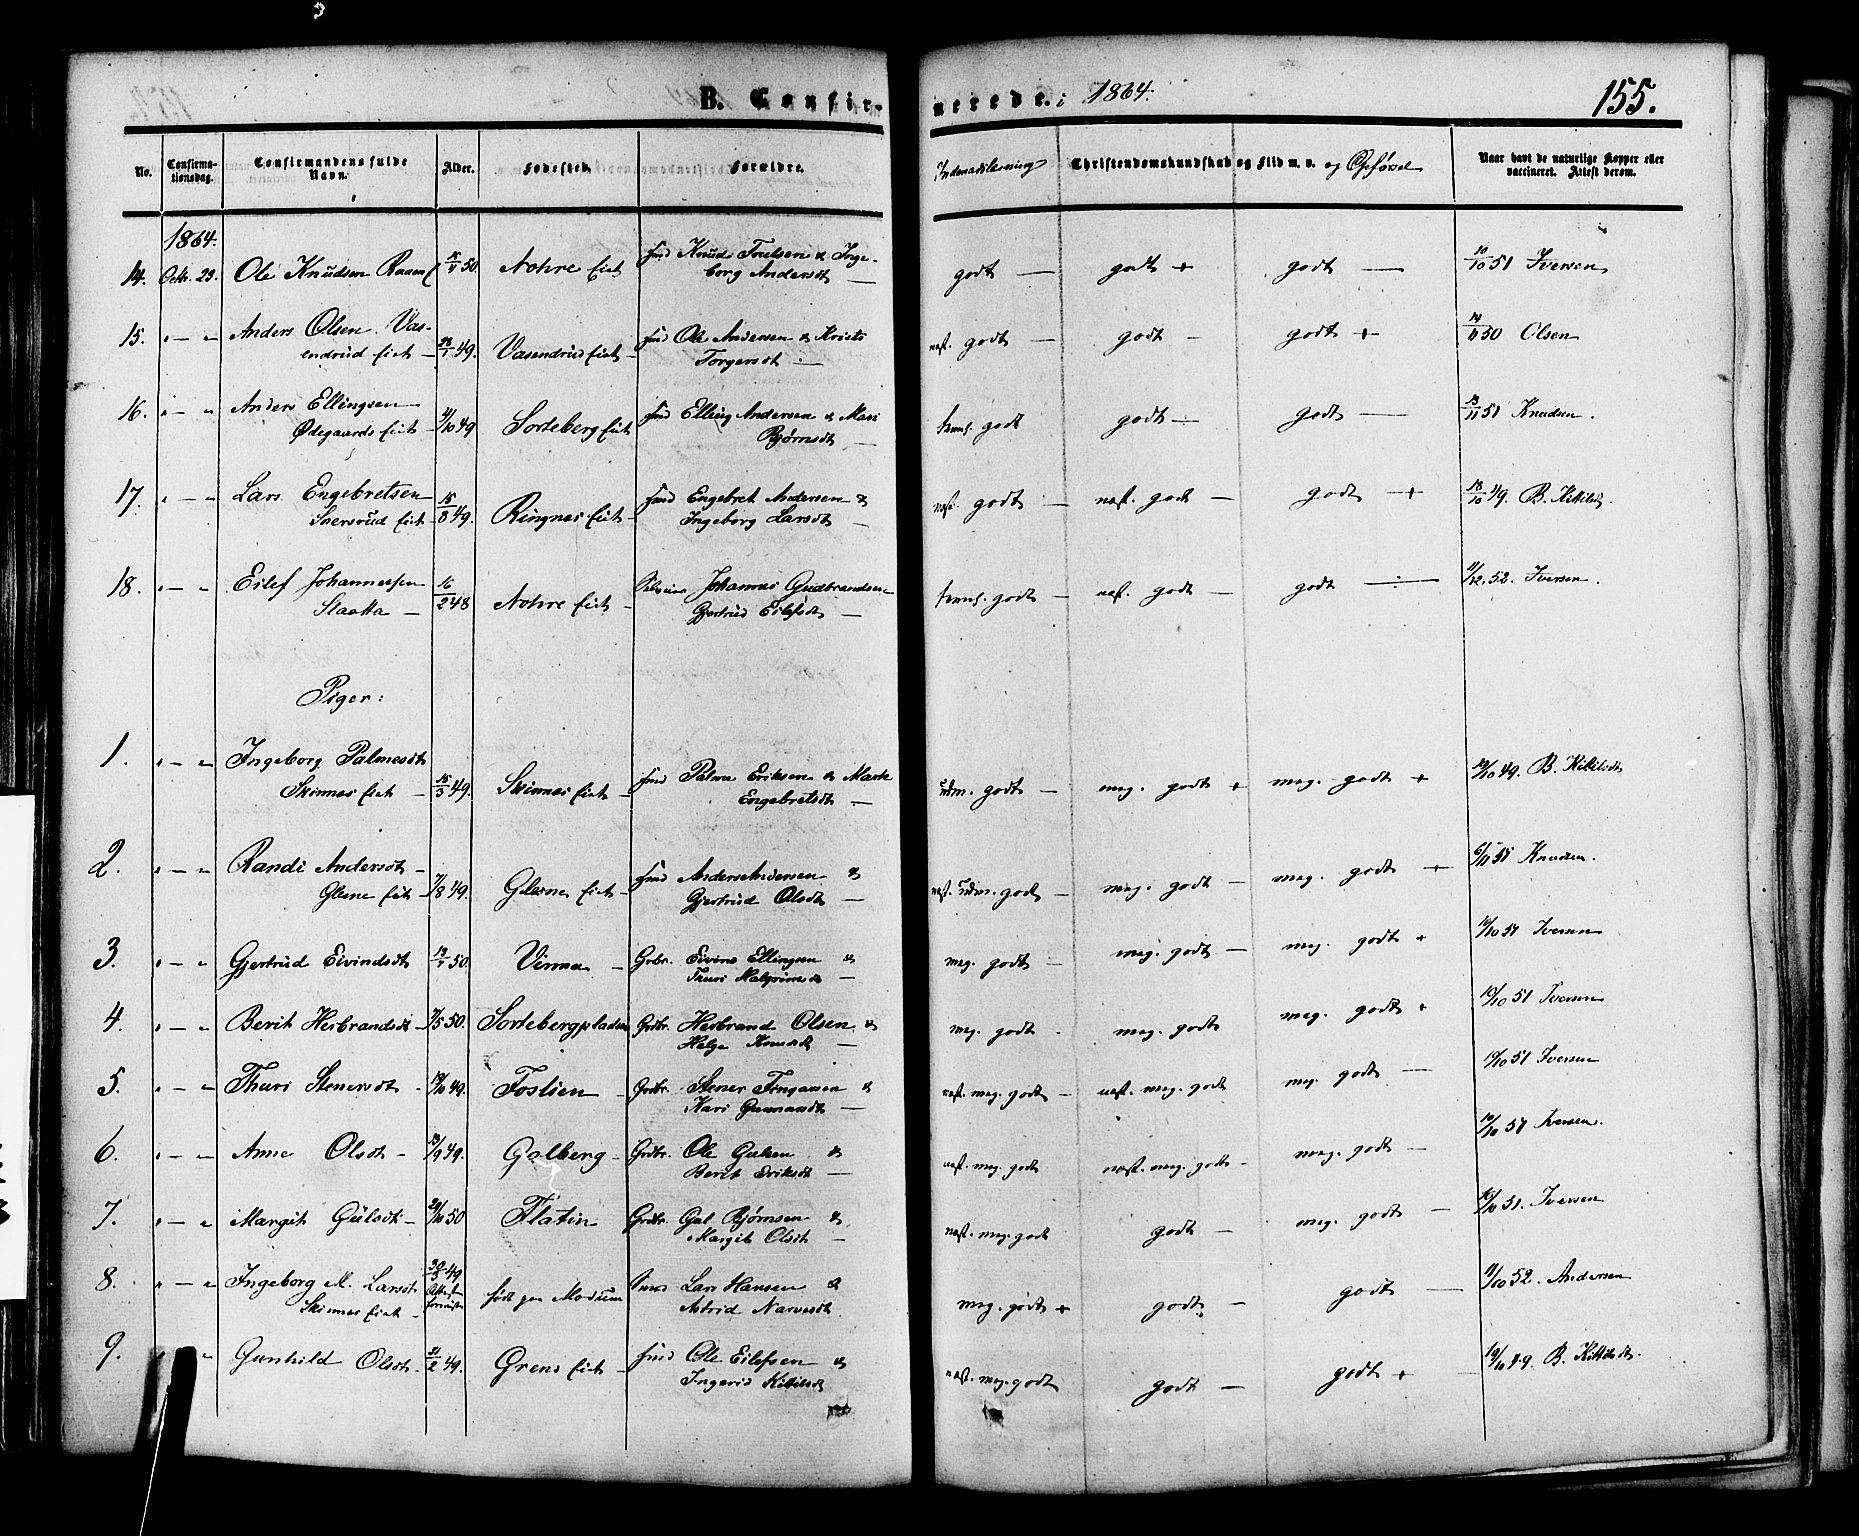 B. Confirmerede. i 1864. 155.
No. Confirmationsdag. Confirmandens fulde Navn. Alder. Fødested. Forældre. Indenadslæsning Christendomskundskab og Flid m. v. og Opførsel Naar havt de naturlige Kopper eller vaccineret. Attest derom.
1864.
14. Octr. 23. Ole Knudsen Raaen 50. Nohre Eiet Knud Truelsen & Ingeborg Andersdt — godt — godt + godt — 10/10 51 Iversen
15. " — " Anders Olsen Vasendrud Eiet — 49. Vasendrud Eiet — Ole Andersen & Kristi Torgersdt — næst. godt — godt — godt + 50 Olsen
16. " — " Anders Ellingsen Ødegaards Eiet — 4/10 49 Sorteberg Eiet Elling Andersen & Mari Bjørnsdt — godt godt — godt — 13/11 51 Knudsen.
17. " — " Lars Engebretsen Snersrud Eiet — 15/8 49. Ringnes Eiet — Engebret Andersen & Ingeborg Larsdt — næst. godt — næst. godt — godt — + 18/10 49. B. Kittilsdt.
18. " — " Eilef Johannessen Slaatta — 16/2 48 Nohre Eiet — Johannes Gudbrandsen Gjertrud Eilefsdt — godt — næst. godt — godt — 11/12 52. Iversen.
Piger:
1. " — " Ingeborg Palmesdt Skinnes Eiet — 15/3 49. Skinnes Eiet — Palme Eriksen & Marte Engebretsdt — udm. godt — meg. godt + meg. godt + 49. B. Kittilsdt
2. " — " Randi Andersdt — Glesne Eiet — 7/8 49. Glesne Eiet — Anders Andersen & Gjertrud Olsdt — næst. udm. godt — meg. godt — meg. godt + Knudsen.
3. " — " Gjertrud Eivindsdt 50. — Grbr. Eivind Ellingsen & Thuri Halgrimsdt — meg. godt — meg. godt — meg. godt + 10/10 51 Iversen
4. " — " Berit Herbrandsdt — 7/5 50. Sortebergpladsen Grdbr. Herbrand Olsen & Helge Knudsdt — meg. godt — meg. godt meg. godt + 10/10 51 Iversen
5. " — " Thuri Stenersdt — 49. Foslien — Grdbr. Stener & Kari Gunnarsdt — næst. meg. godt — næst. meg. godt meg. godt — 10/10 51 Iversen
6. " — " Anne Olsdt — 13/9 49. Golberg — Grdbr. Ole Gulsen & Berit Eriksdt — næst. meg. godt næst. meg. godt — meg. godt — 10/10 51 Iversen.
7. " — " Margit Gulsdt — 50 Flatin Grdbr. Gul Bjørnsen & Margit Olsdt — næst. meg. godt godt — meg. godt — 10/10 51. Iversen
8. " — " Ingeborg M. Larsdt Skinnes Eiet — 49 født paa Modum Lars Hansen & Astrid Narvesdt. meg. godt + godt — godt — 11/10 52. Andersen
9. " Gunhild Olsdt — 21/2 49. Grens Eiet — Ole Eilefsen & Ingerid Kittilsdt næst. meg. godt godt — godt + 49. B. Kittilsdt.